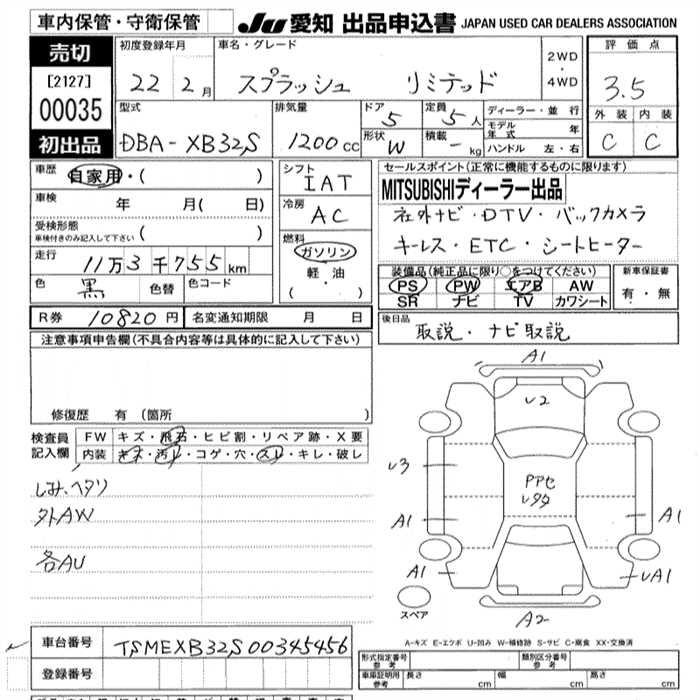 車内保管・守衛保管
JU 愛知 出品申込書 JAPAN USED CAR DEALERS ASSOCIATION
売切
[2127]
00035
初出品
初度登録年月
22 2月
車名・グレード
スプラッシュ リミテッド
2WD
・
4WD
評価点
3.5
外装 内装
C C
型式
DBA-XB32S
排気量
1200cc
ドア
5
形状
W
定員
5人
積載
- kg
ディーラー・並行
モデル年式 年
ハンドル 左・右
車歴
自家用・( )
車検
年 月( 日)
受検形態
車検付きのみ記入して下さい ( )
走行
11万3千755km
色 黒 色替 色コード
シフト
IAT
冷房
AC
燃料
ガソリン
軽・油
( ・ )
セールスポイント(正常に機能するものに限ります)
MITSUBISHIディーラー出品
社外ナビ・DTV・バックカメラ
キーレス・ETC・シートヒーター
装備品(純正品に限り○をつけてください)
PS PW エアB AW
SR ナビ TV カワシート
新車保証書
有・無
R券 10820円 名変通知期限 月 日
後日品
取説・ナビ取説
注意事項申告欄(不具合内容等は具体的に記入して下さい)
修復歴 有 (箇所 )
検査員
記入欄
FW キズ・飛石・ヒビ割・リペア跡・X要
内装 キズ・汚レ・コゲ・穴・スレ・キレ・破レ
しみ、ヘタリ
外AW
各AU
A1
U2
U3
A1
A1
A1
UA1
A2
スペア
A-キズ E-エクボ U-凹み W-補修跡 S-サビ C-腐食 XX-交換済
車台番号 TSMEXB32S00345456
登録番号
形式指定番号
参考
類別区分番号
参考
車庫証明用
参考
長さ cm 幅 cm 高さ cm